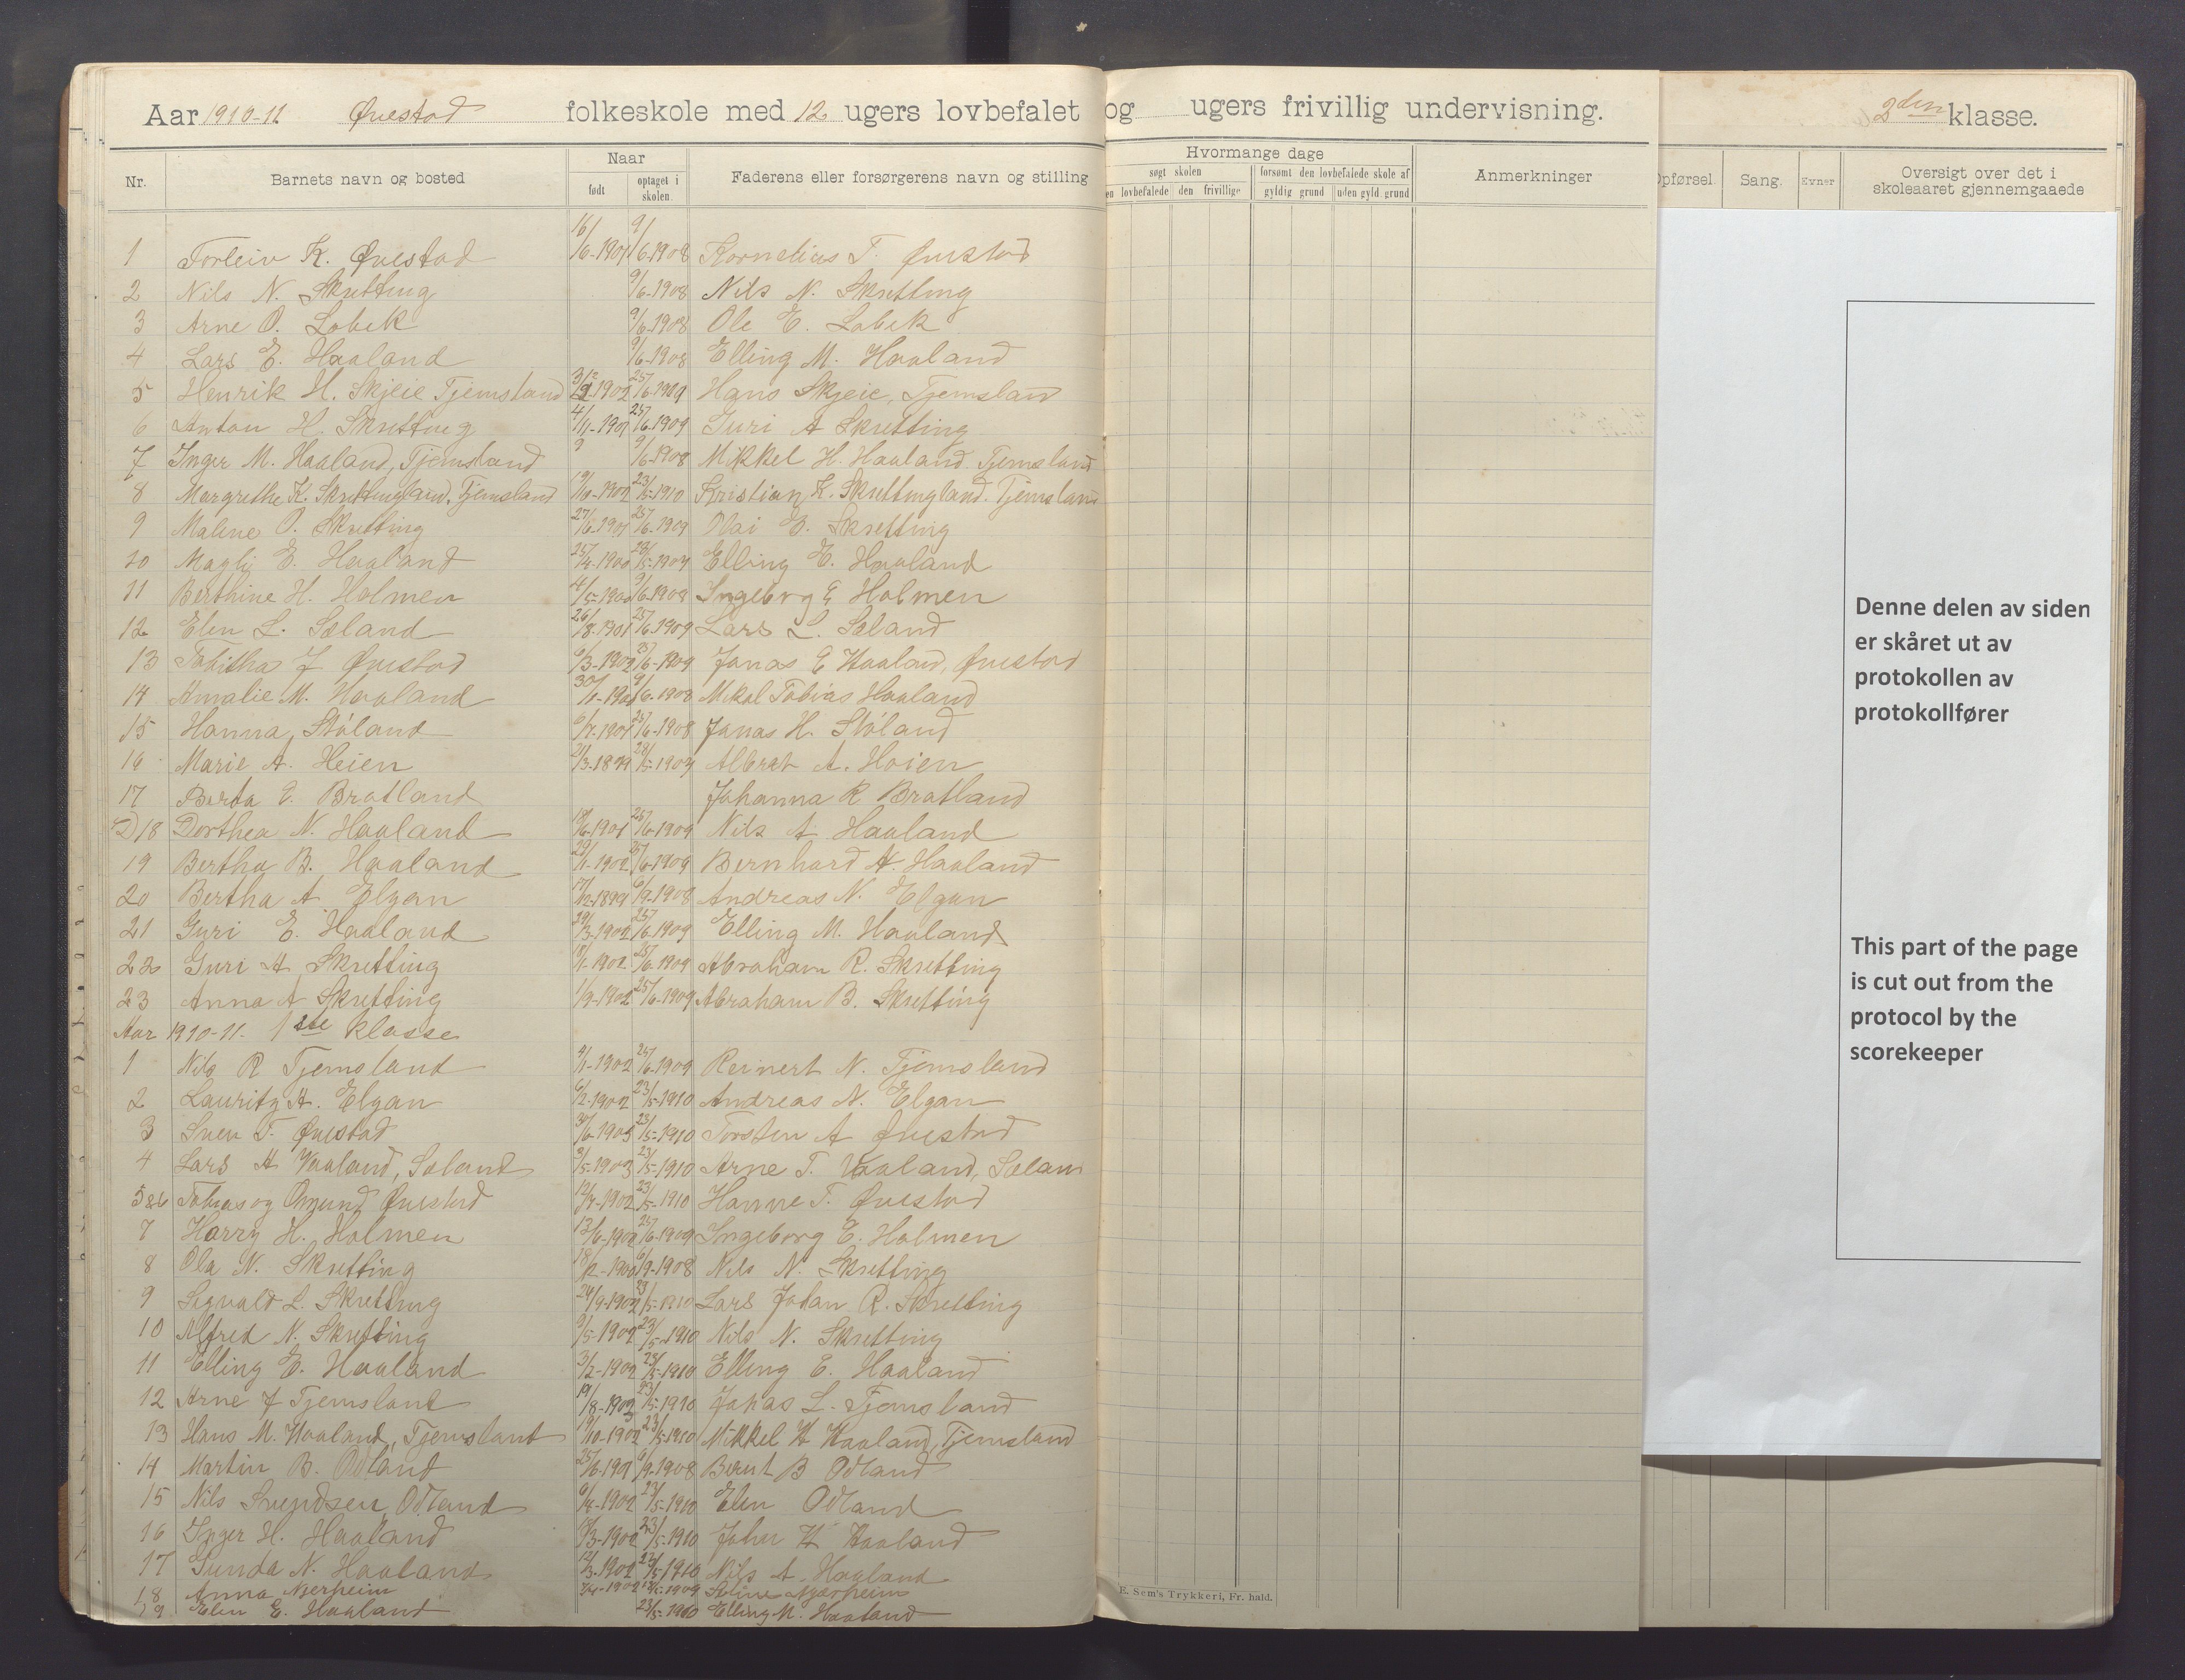 Aar 1910-11 Øvestad folkeskole med 12 ugers lovbefalet og ugers frivillig undervisning. 2den klasse.
Nr. Barnets navn og bosted Naar Faderens eller forsørgerens navn og stilling Hvormange dage Anmerkninger Opførsel Sang. Evner Oversigt over det i skoleaaret gjennemgaaede
født optaget i skolen. søgt skolen forsømt den lovbefalede skole af
lovbefalede den frivillige gyldig grund uden gyld. grund
1 Torleiv K. Øvestad 16/6-1901 9/6-1908 Kornelius T. Øvestad
2 Nils N. Skretting 9/6-1908 Nils N. Skretting
3 Arne O. Lobek 9/6-1908 Ole E. Lobek
4 Lars E. Haaland 9/6-1908 Elling M. Haaland
5 Henrik H. Skjeie Tjemsland 1902 25/6-1909 Hans Skjeie, Tjemsland
6 Anton H. Skretting 4/11-1901 25/6-1909 Guri A Skretting
7 Inger M. Haaland, Tjemsland 9/6-1908 Mikkel H. Haaland. Tjemsland
8 Margrethe K. Skrettingland, Tjemsland 19/10-1902 23/5-1910 Kristian K. Skrettingland. Tjemsland
9 Malene O. Skretting 27/6-1901 25/6-1909 Olai B. Skretting
10 Magli E. Haaland 25/4-1900 28/5-1907 Elling E. Haaland
11 Berthine H. Holmen 4/5-1900 9/6-1908 Ingeborg E Holmen
12 Elen L. Sæland 26/8-1901 25/6-1909 Lars L. Sæland
13 Tabitha J Øvestad 6/3-1902 25/6-1909 Jonas E Haaland, Øvestad
14 Amalie M. Haaland 30/1-1901 9/6-1908 Mikal Tobias Haaland
15 Hanna Støland 6/7-1901 25/6-1908 Jonas H. Støland
16 Marie A. Heien 21/3-1899 28/5-1907 Albret A. Hoien
17 Berta E. Bratland Johanna R Bratland
18 Dorthea N. Haaland 18/6-1901 25/6-1909 Nils A Haaland
19 Bertha B. Haaland 29/1-1902 25/6-1909 Bernhard A. Haaland
20 Bertha A. Elgan 17/12-1899 6/9-1908 Andreas N. Elgan
21 Guri E. Haaland 29/3-1902 25/6-1909 Elling M. Haaland
22 Guri A Skretting 1-1902 25/6-1909 Abraham R. Skretting
23 Anna A Skretting 1/9-1902 25/6-1909 Abraham B. Skretting
Aar 1910-11. 1ste klasse
1 Nils R Tjemsland 4/1-1902 25/6-1909 Reinert N. Tjemsland
2 Lauritz A. Elgan 6/2-1902 23/5-1910 Andreas N. Elgan
3 Sven T. Øvestad 30/6-1903 23/5-1910 Torsten A Øvestad
4 Lars A Vaaland, Sæland 3/5-1903 23/5-1910 Arne T. Vaaland, Sæland
5&6 Tobias og Omund Øvestad 12/7-1902 23/5-1910 Hanne T. Øvestad
7 Harry H. Holmen 13/6-1902 25/6-1909 Ingeborg E. Holmen
8 Ola N. Skretting 18/12-1900 6/9-1908 Nils N. Skretting
9 Sigvald L. Skretting 24/9-1902 23/5-1910 Lars Johan R. Skretting
10 Alfred N. Skretting 9/5-1902 23/5-1910 Nils N. Skretting
11 Elling E. Haaland 3/2-1902 23/5-1910 Elling E. Haaland
12 Arne J Tjemsland 19/8-1902 23/5-1910 Jonas L. Tjemsland
13 Hans M. Haaland, Tjemsland 19/10-1902 23/5-1910 Mikkel H Haaland, Tjemsland
14 Martin B. Odland 25/6-1901 6/9-1908 Berut B Odland
15 Nils Svendsen Odland 6/8-1902 23/5-1910 Elen Odland
16 Inger H. Haaland 3-1902 23/5-1910 H Haaland
17 Gunda N. Haaland 12/3-1902 23/5-1910 Nils A. Haaland
18 Anna Njerheim 7/4-1902 1909 Njærheim
19 Elen E. Haaland 23/5-1910 Elling M. Haaland
E. Sem's Trykkeri, Fr. hald.
Denne delen av siden
er skåret ut av
protokollen av
protokollfører
This part of the page
is cut out from the
protocol by the
scorekeeper